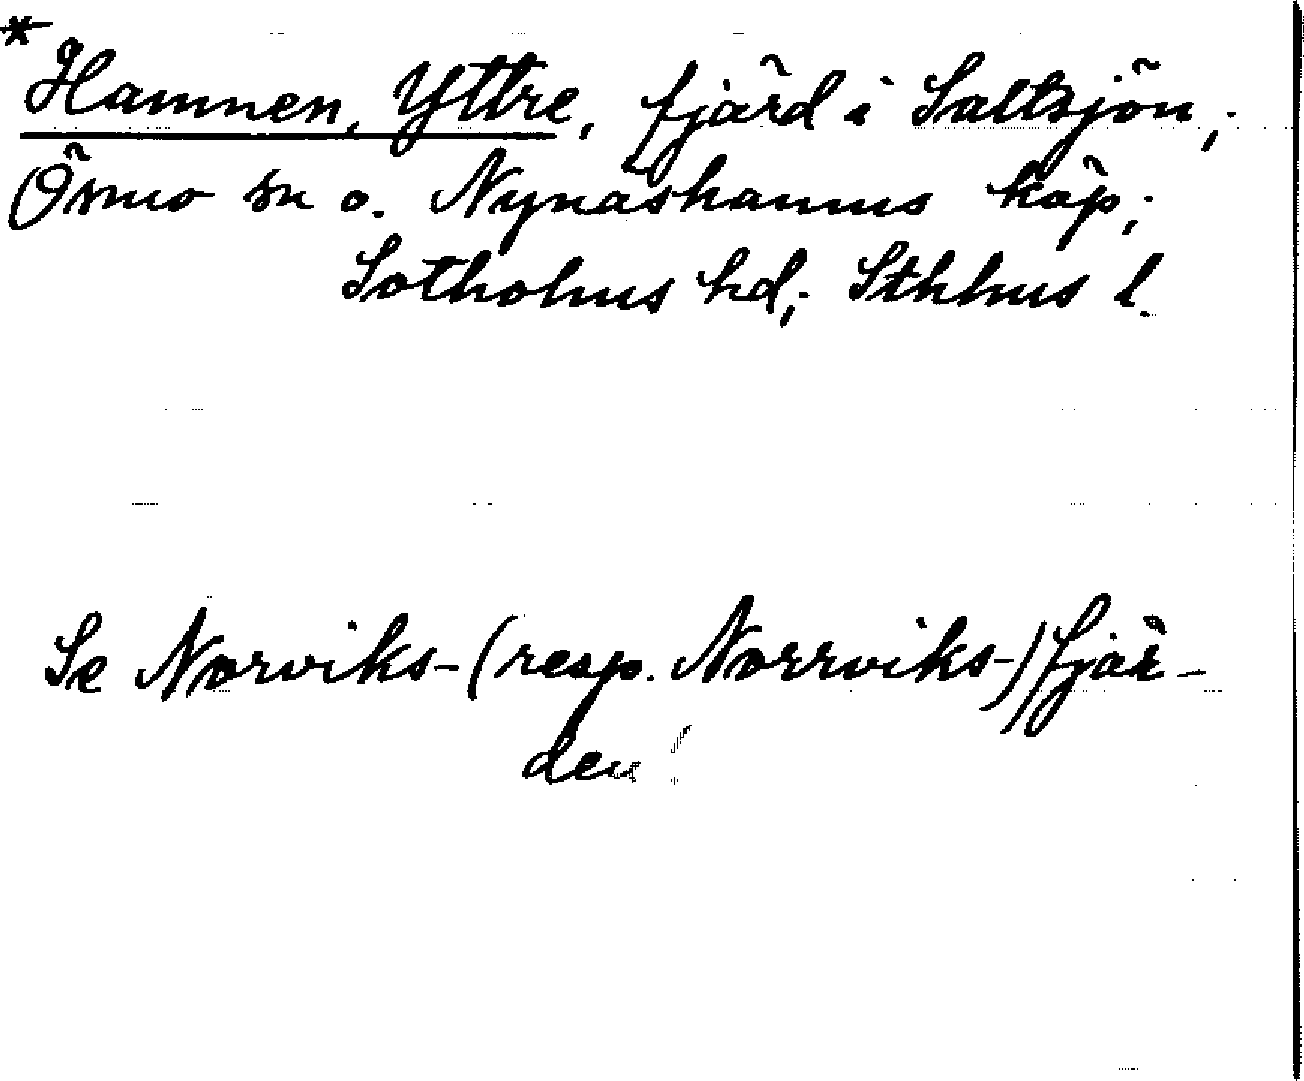 * Hamnen, Yttre, fjärd i Saltsjön,;
Ösmo sn o. Nynäshamns köp,;
Sotholms hd,; Sthlms l.
Se Norviks-(resp. Norrviks-)fjär-
den!